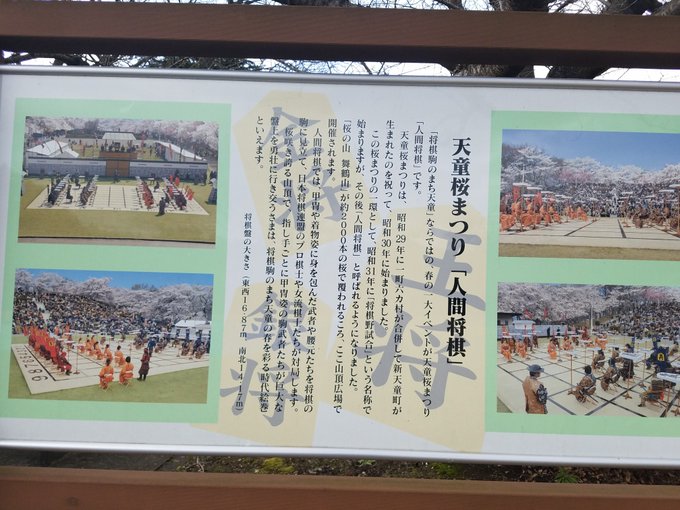 天童桜まつり「人間将棋」
「将棋駒のまち天童」ならではの、春の一大イベントが天童桜まつり
「人間将棋」です。
天童桜まつりは、昭和29年に一町六カ村が合併して新天童町が
生まれたのを祝って、昭和30年に始まりました。
この桜まつりの一環として、昭和31年に「将棋野試合」という名称で
始まりますが、その後「人間将棋」と呼ばれるようになりました。
「桜の山 舞鶴山」が約2000本の桜で覆われるころ、ここ山頂広場で
開催されます。
人間将棋では、甲冑や着物姿に身を包んだ武者や腰元たちを将棋の
駒に見立て、日本将棋連盟のプロ棋士や女流棋士たちが対局します。
桜咲き誇る山頂で、指し手ごとに甲冑姿の駒武者たちが巨大な
盤上を勇壮に行き交うさまは、将棋駒のまち天童の春を彩る時代絵巻
といえます。
将棋盤の大きさ(東西16.87m、南北14.17m)
王将